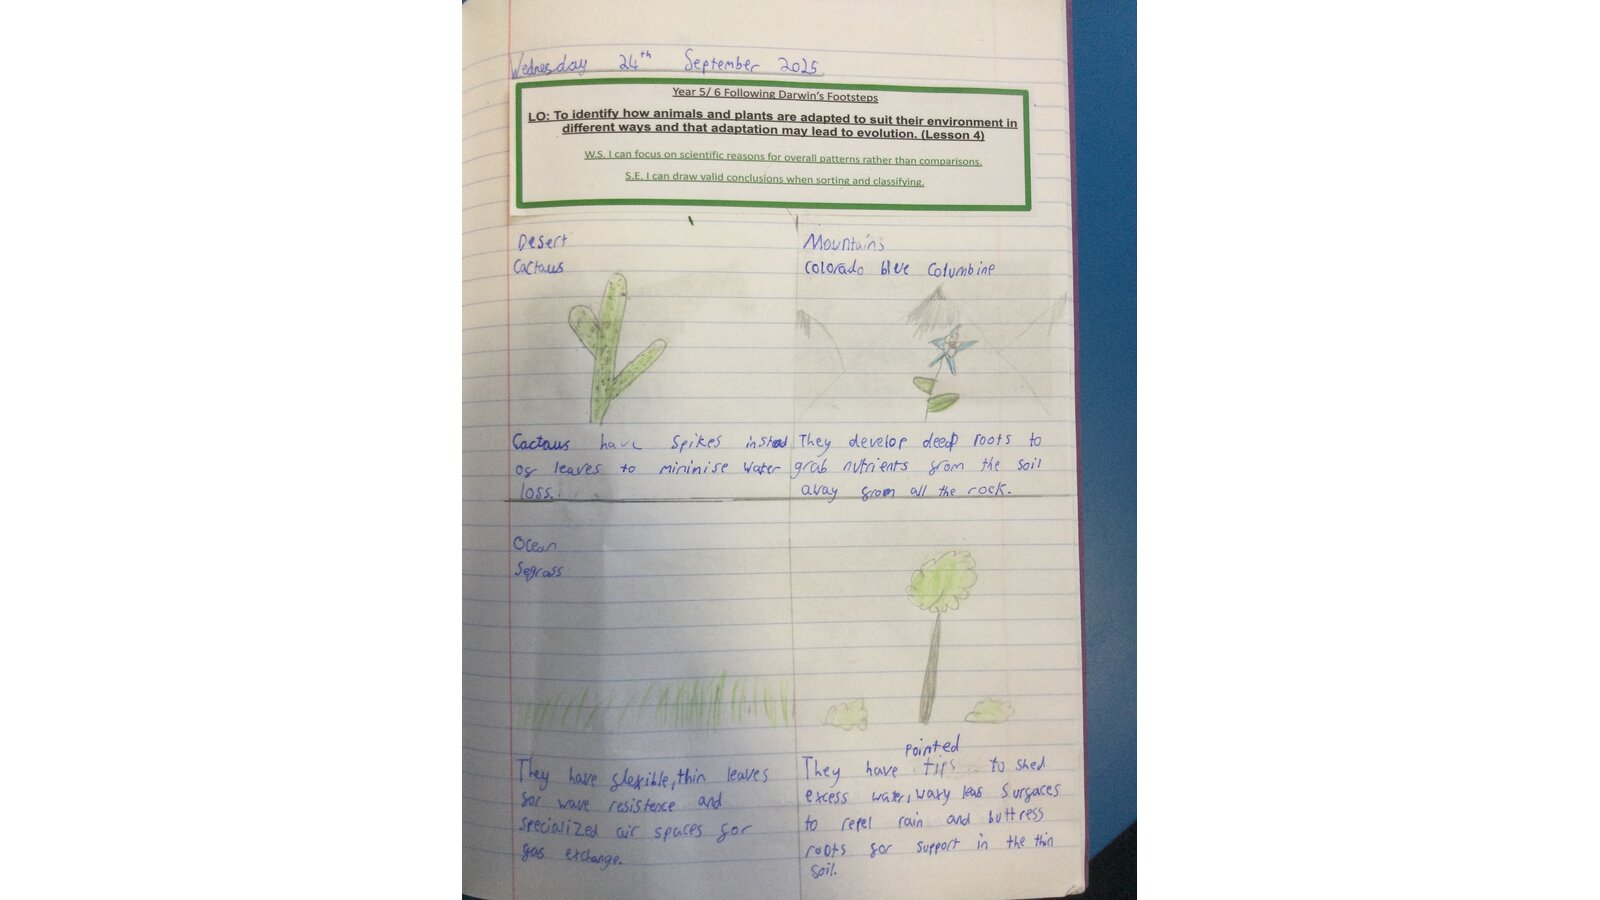 Wednesday 24th September 2025
Year 5/ 6 Following Darwin's Footsteps
LO: To identify how animals and plants are adapted to suit their environment in
different ways and that adaptation may lead to evolution. (Lesson 4)
W.S. I can focus on scientific reasons for overall patterns rather than comparisons.
S.E. I can draw valid conclusions when sorting and classifying.
Desert
Cactaus
Cactaus have spikes instead
of leaves to minimise water
loss.
Mountains
Colorado blue Columbine
They develop deep roots to
grab nutrients from the soil
away from all the rock.
Ocean
Segrass
They have flexible, thin leaves
for wave resistence and
specialized air spaces for
gas exchange.
pointed
They have tips to shed
excess water, waxy leas surfaces
to repel rain and buttress
roots for support in the thin
soil.